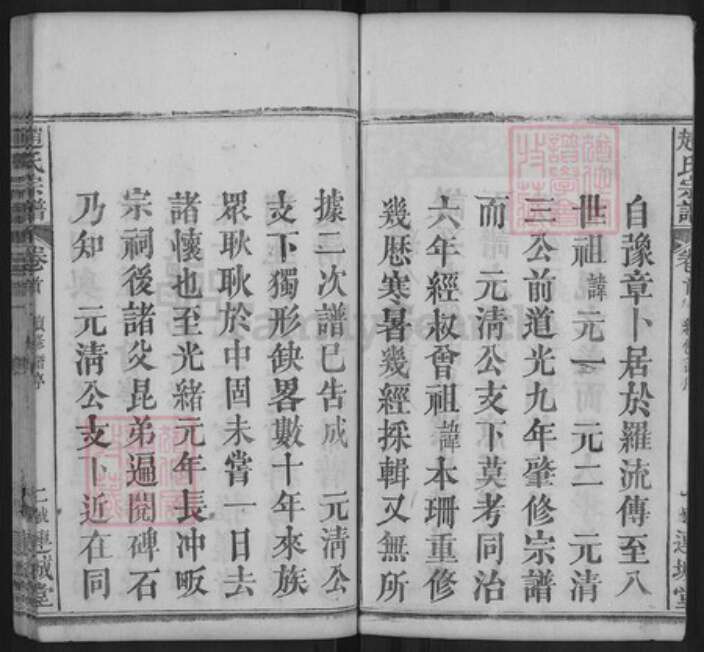 趙氏宗譜
卷首
自豫章卜居於羅流傳至八
世祖諱元一而 元二 元清
三公前道光九年肇修宗譜
而 元清公支下莫考同治
六年經叔曾祖諱本珊重修
幾厯寒暑幾經採輯又無所
據二次譜已告成 元清公
支下獨形缺畧數十年來族
眾耿耿於中固未嘗一日去
諸懷也至光緒元年長冲畈
宗祠後諸父昆弟遍閱碑石
乃知 元清公支卜近在同
趙氏宗譜
卷首
連城堂